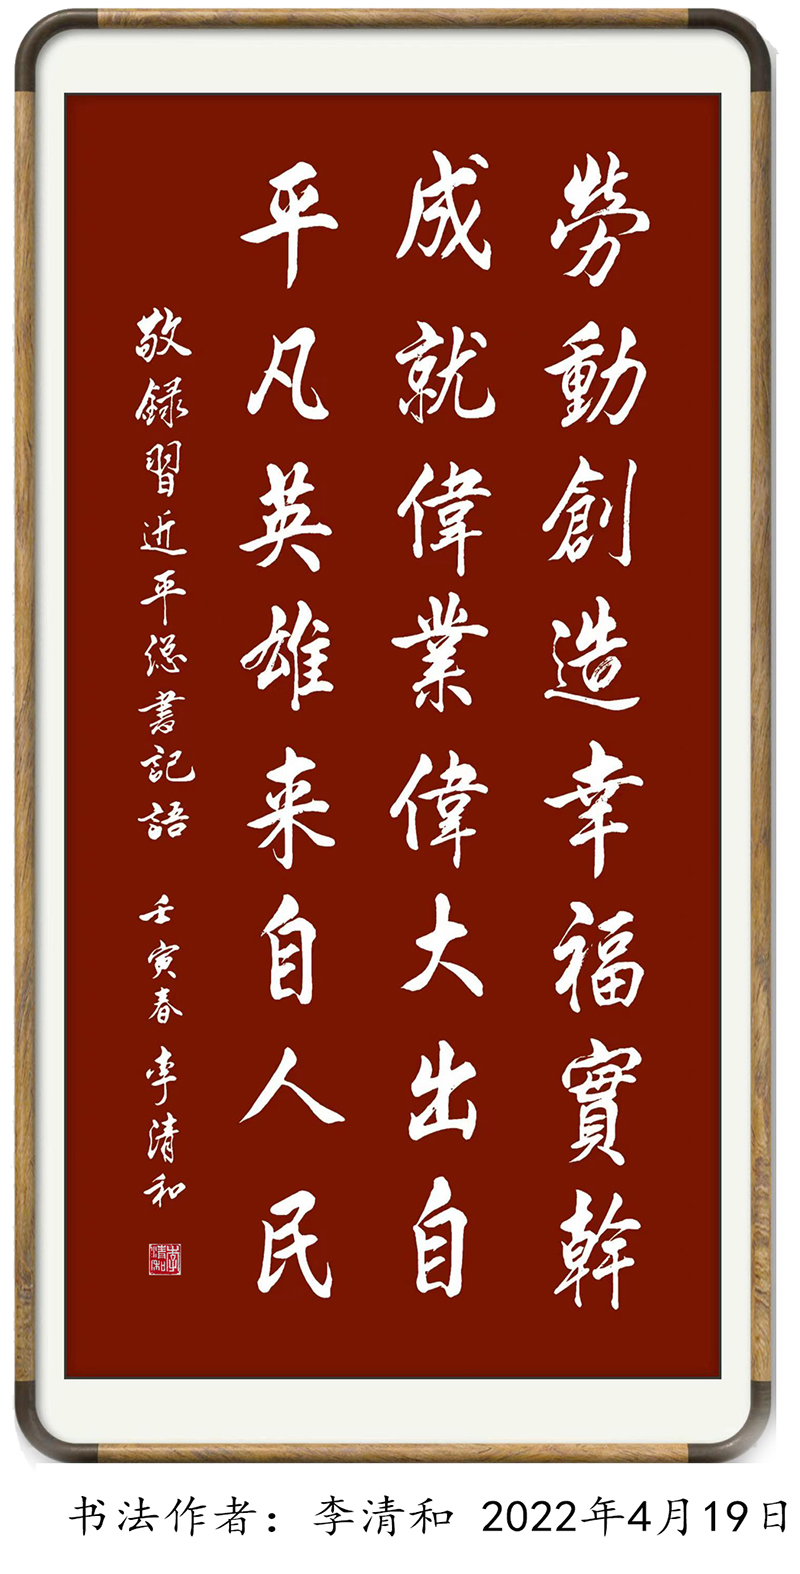 勞動創造幸福實幹
成就偉業偉大出自
平凡英雄来自人民
敬録習近平總書記語 壬寅春 李清和
李清和
书法作者：李清和 2022年4月19日